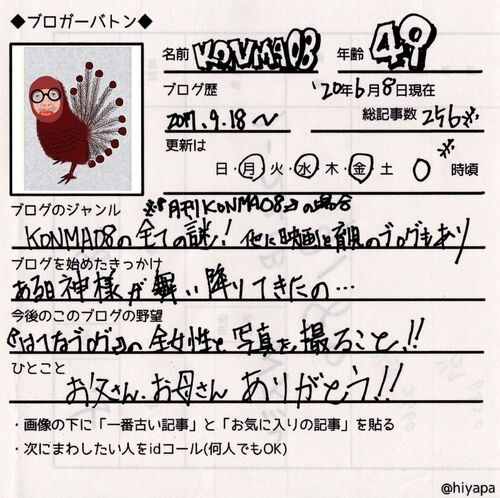 ◆ブロガーバトン◆
名前 KONMA08 年齢 49
ブログ歴 '20年6月8日現在
2017.9.18〜 総記事数 256※
更新は
日・月・火・水・木・金・土 0時頃
※『月刊KONMA08』の場合
ブログのジャンル
KONMA08の全ての謎! 他に映画と育児のブログもあり
ブログを始めたきっかけ
ある日神様が舞い降りてきたの…
今後のこのブログの野望
『はてなブログ』の全女性と写真を撮ること!!
ひとこと
お父さん.お母さん ありがとう!!
・画像の下に「一番古い記事」と「お気に入りの記事」を貼る
・次にまわしたい人をidコール(何人でもOK)
@hiyapa